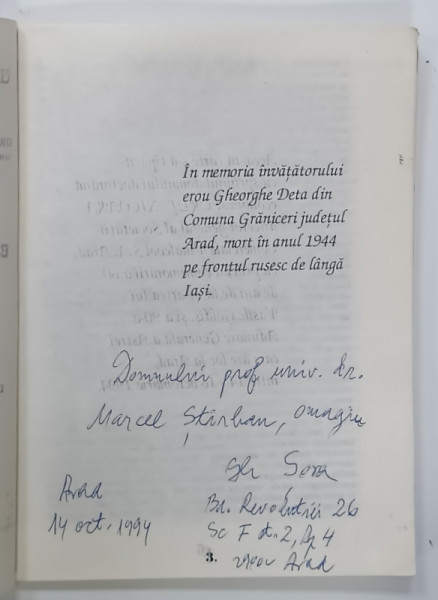 În memoria învăţătorului
erou Gheorghe Deta din
Comuna Grăniceri judeţul
Arad, mort în anul 1944
pe frontul rusesc de lângă
Iaşi.
Domnului prof. univ. dr.
Marcel Ştirban, omagiu
Gh Şora
Arad
14 oct. 1994
Bd. Revoluţiei 26
Sc F et. 2, Ap 4
2900 Arad
3.